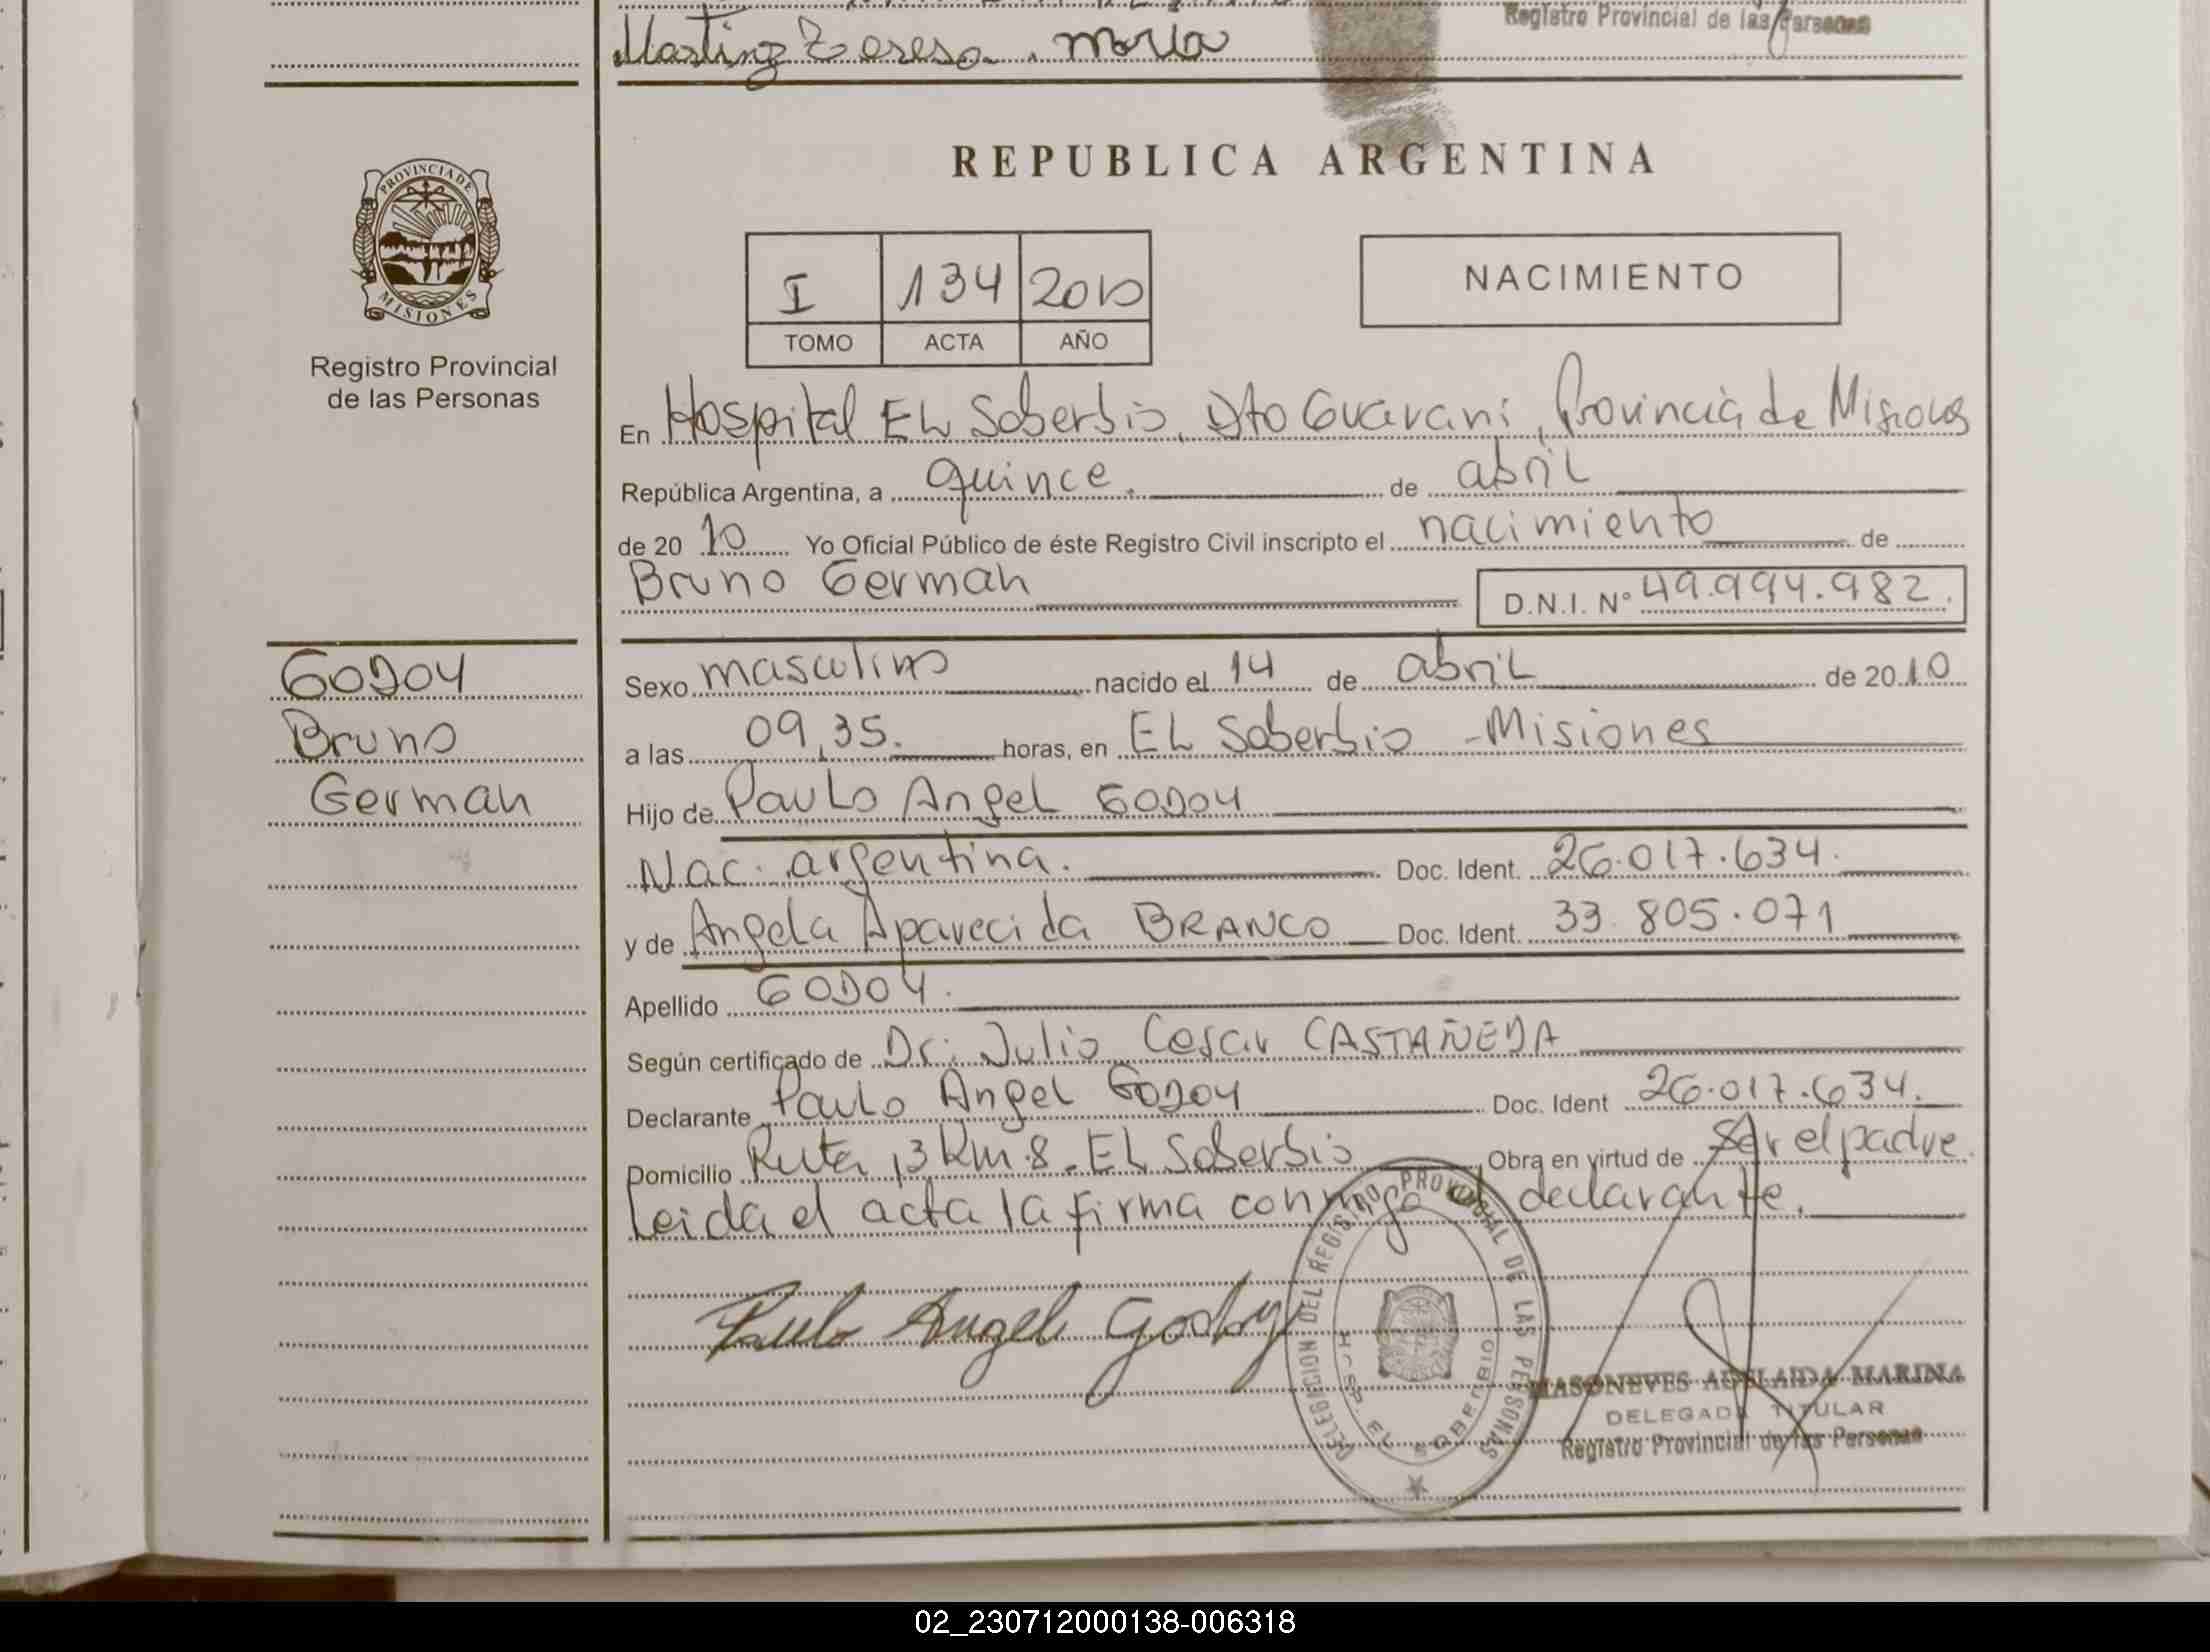 Martinez Teresa Maria
Registro Provincial de las Personas
REPUBLICA ARGENTINA
PROVINCIA DE
MISIONES
Registro Provincial
de las Personas
I 134 2010
TOMO ACTA AÑO
NACIMIENTO
En Hospital EL Soberbio, Dto Guarani, Provincia de Misiones
República Argentina, a quince. de abril
de 20 10 Yo Oficial Público de éste Registro Civil inscripto el nacimiento de
Bruno German D.N.I. Nº 49.994.982.
GODOY
Bruno
German
Sexo masculino nacido el 14 de abril de 2010
a las 09,35. horas, en EL Soberbio - Misiones
Hijo de Paulo Angel GODOY
Nac. argentina. Doc. Ident. 26.017.634.
y de Angela Aparecida BRANCO Doc. Ident. 33.805.071
Apellido GODOY.
Según certificado de Dr: Julio Cesar CASTAÑEDA
Declarante Paulo Angel GODOY Doc. Ident 26.017.634.
Domicilio Ruta 13 Km 8 - EL Soberbio Obra en virtud de Ser el padre
Leida el acta la firma conmigo el declarante.
Paulo Angel Godoy
DELEGACION DEL REGISTRO PROVINCIAL DE LAS PERSONAS
HOSP. EL SOBERBIO
MASONEVES ADELAIDA MARINA
DELEGADA TITULAR
Registro Provincial de las Personas
02_230712000138-006318